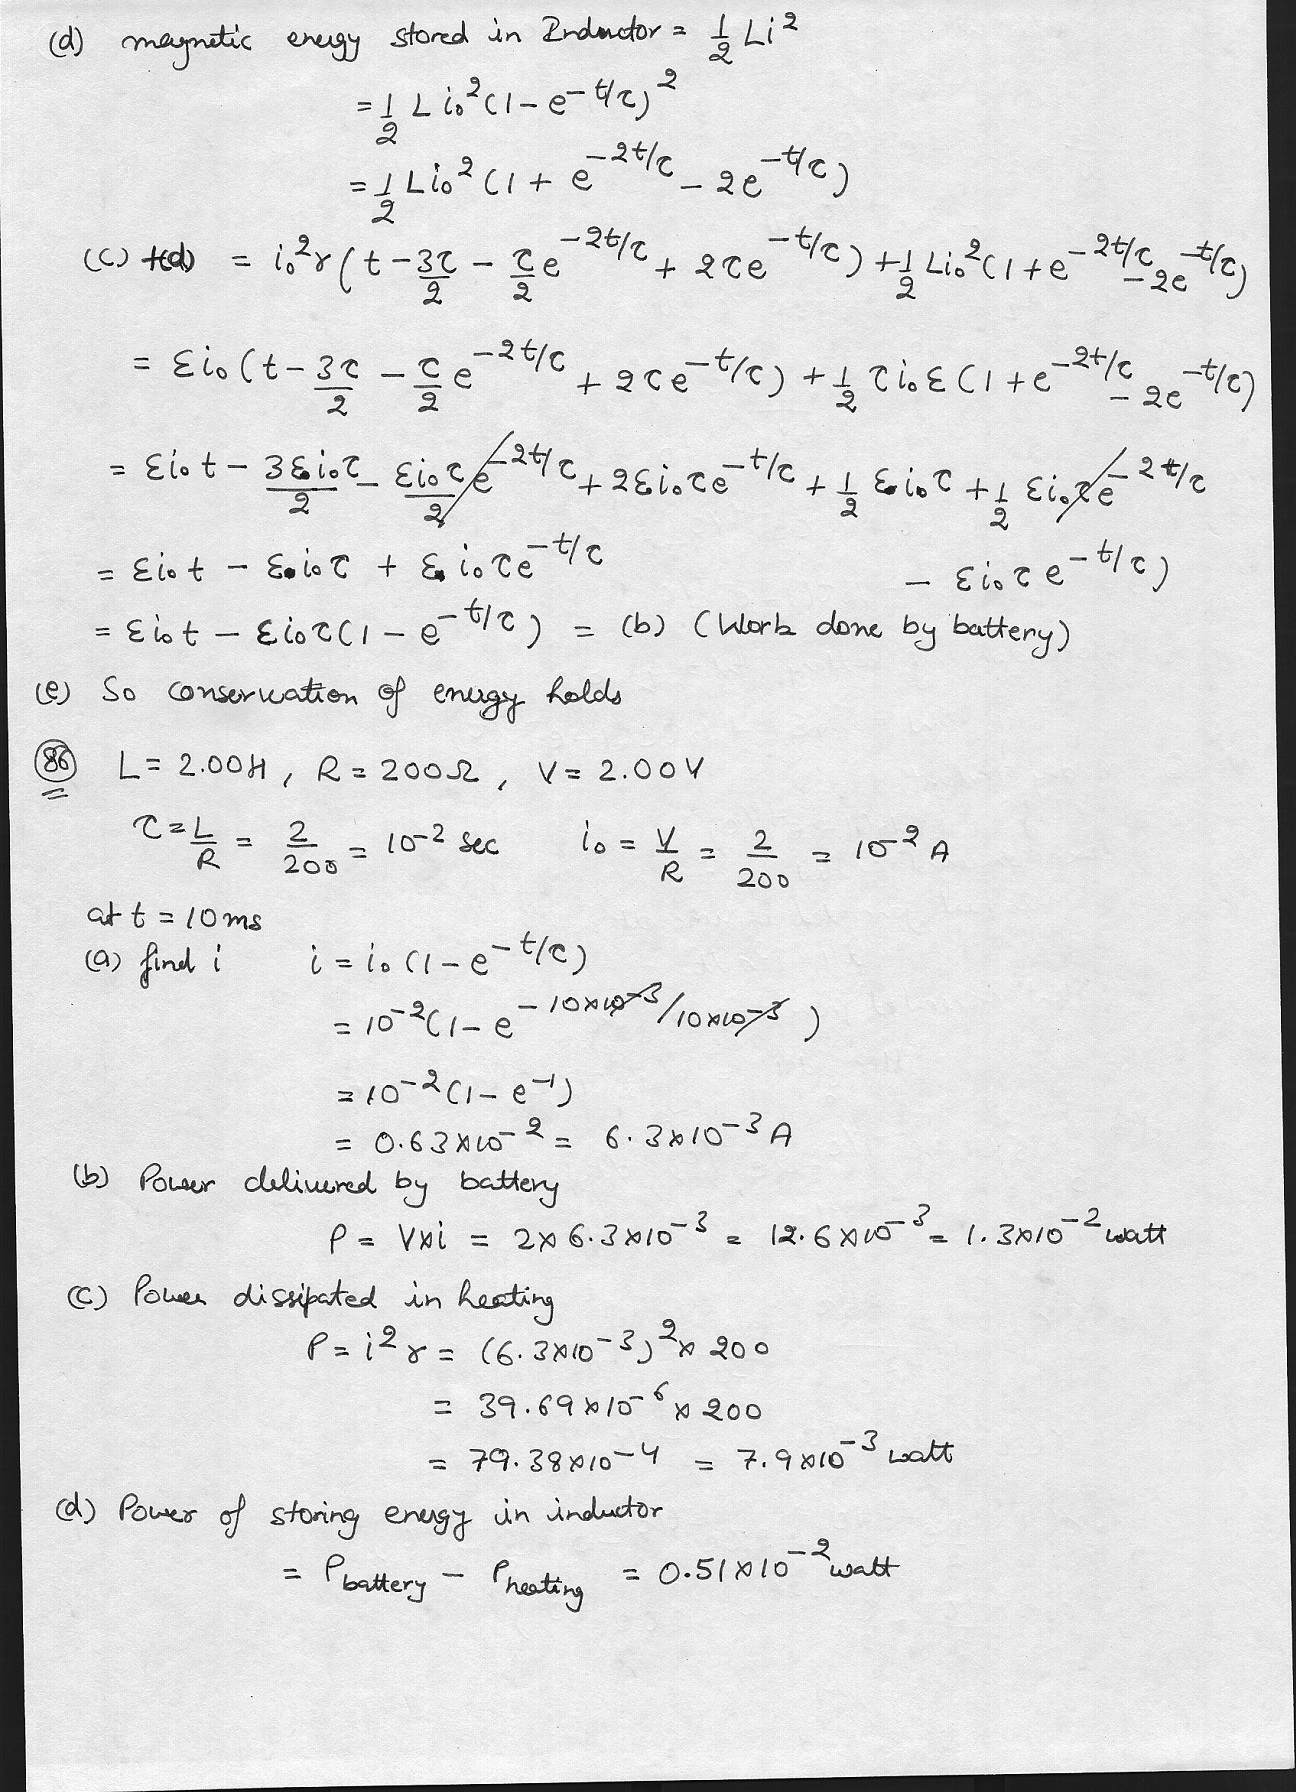 (d) magnetic energy stored in Inductor = 1/2 Li²
= 1/2 L i₀² (1 - e^(-t/τ))²
= 1/2 L i₀² (1 + e^(-2t/τ) - 2e^(-t/τ))
(c) +(d) = i₀² r (t - 3τ/2 - τ/2 e^(-2t/τ) + 2τe^(-t/τ)) + 1/2 L i₀² (1 + e^(-2t/τ) - 2e^(-t/τ))
= εi₀ (t - 3τ/2 - τ/2 e^(-2t/τ) + 2τe^(-t/τ)) + 1/2 τi₀ε (1 + e^(-2t/τ) - 2e^(-t/τ))
= εi₀t - 3εi₀τ/2 - εi₀τ/2 e^(-2t/τ) + 2εi₀τe^(-t/τ) + 1/2 εi₀τ + 1/2 εi₀τe^(-2t/τ)
- εi₀τe^(-t/τ))
= εi₀t - εi₀τ + εi₀τe^(-t/τ)
= εi₀t - εi₀τ(1 - e^(-t/τ)) = (b) (Work done by battery)
(e) So conservation of energy holds
86 L = 2.00H, R = 200Ω, V = 2.00V
τ = L/R = 2/200 = 10⁻² sec i₀ = V/R = 2/200 = 10⁻² A
at t = 10ms
(a) find i i = i₀ (1 - e^(-t/τ))
= 10⁻² (1 - e^(-10×10⁻³/10×10⁻³))
= 10⁻² (1 - e⁻¹)
= 0.63×10⁻² = 6.3×10⁻³ A
(b) Power delivered by battery
P = V×i = 2×6.3×10⁻³ = 12.6×10⁻³ = 1.3×10⁻² watt
(c) Power dissipated in heating
P = i² r = (6.3×10⁻³)² × 200
= 39.69×10⁻⁶ × 200
= 79.38×10⁻⁴ = 7.9×10⁻³ watt
(d) Power of storing energy in inductor
= P battery - P heating = 0.51×10⁻² watt